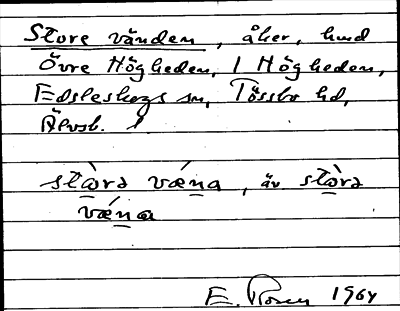 Store vänden, åker, hmd
Övre Högheden, 1 Högheden,
Edsleskogs sn, Tössbo hd,
Älvsb. l
stᴀ̀rə vǽna, äv stᴀ̀rə
vǽna
E. Rosen 1964